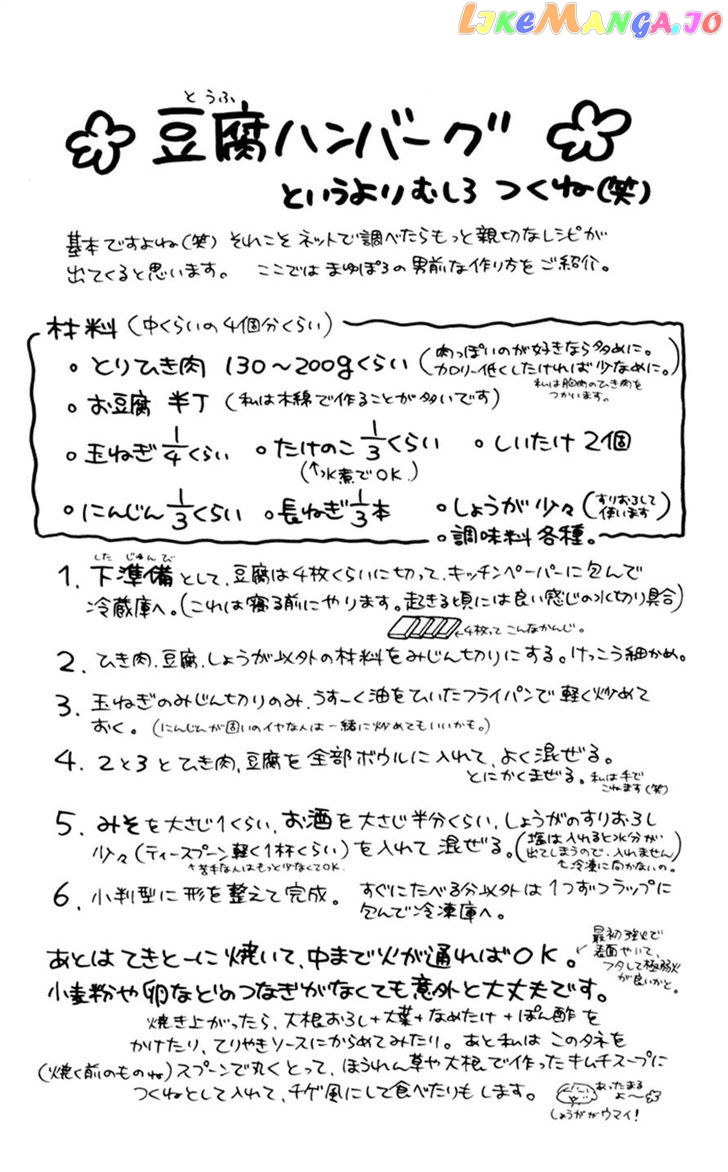 LIKEMANGA.IO
とうふ
豆腐ハンバーグ
というよりむしろ つくね(笑)
基本ですよね(笑) それこそ ネットで調べたらもっと親切なレシピが
出てくると思います。 ここでは まゆぽろの男前な作り方をご紹介。
材料(中くらいの4個分くらい)
・とりひき肉 130〜200gくらい(肉っぽいのが好きなら多めに。
カロリー低くしたければ少なめに。)
私は胸肉のひき肉を
つかいます。
・お豆腐 半丁(私は木綿で作ることが多いです)
・玉ねぎ1/4くらい ・たけのこ1/3くらい ・しいたけ 2個
(↑水煮でOK.)
・にんじん1/3くらい ・長ねぎ1/3本 ・しょうが少々(すりおろして
使います)
・調味料各種。
した じゅんび
1. 下準備として、豆腐は4枚くらいに切って、キッチンペーパーに包んで
冷蔵庫へ。(これは寝る前にやります。起きる頃には良い感じの水切り具合)
←4枚って こんなかんじ。
2. ひき肉、豆腐、しょうが以外の材料をみじん切りにする。けっこう細かめ。
3. 玉ねぎのみじん切りのみ、うすーく油をひいたフライパンで軽く炒めて
おく。(にんじんが固いのイヤな人は一緒に炒めてもいいかも。)
4. 2と3とひき肉、豆腐を全部ボウルに入れて、よく混ぜる。
とにかくまぜる。私は手で
こねます(笑)
5. みそを大さじ1くらい、お酒を大さじ半分くらい、しょうがのすりおろし
少々(ティースプーン軽く1杯くらい)を入れて 混ぜる。(塩は入れると水分が
出てしまうので、入れません)
↑苦手な人はもっと少なくてOK.
↑冷凍に向かないの。
6. 小判型に形を整えて完成。 すぐにたべる分以外は1つずつラップに
包んで冷凍庫へ。
あとはてきとーに焼いて、中まで火が通ればOK。
最初強火で
表面やいて、
フタして極弱火
が良いかと。
小麦粉や卵などのつなぎがなくても意外と大丈夫です。
焼き上がったら、大根おろし+大葉+なめたけ+ぽん酢を
かけたり、てりやきソースにからめてみたり。あと私は このタネを
(焼く前のものね)スプーンで丸くとって、ほうれん草や大根で作ったキムチスープに
つくねとして入れて、チゲ風にして食べたりもします。
あったまる
よ〜
しょうががウマイ!